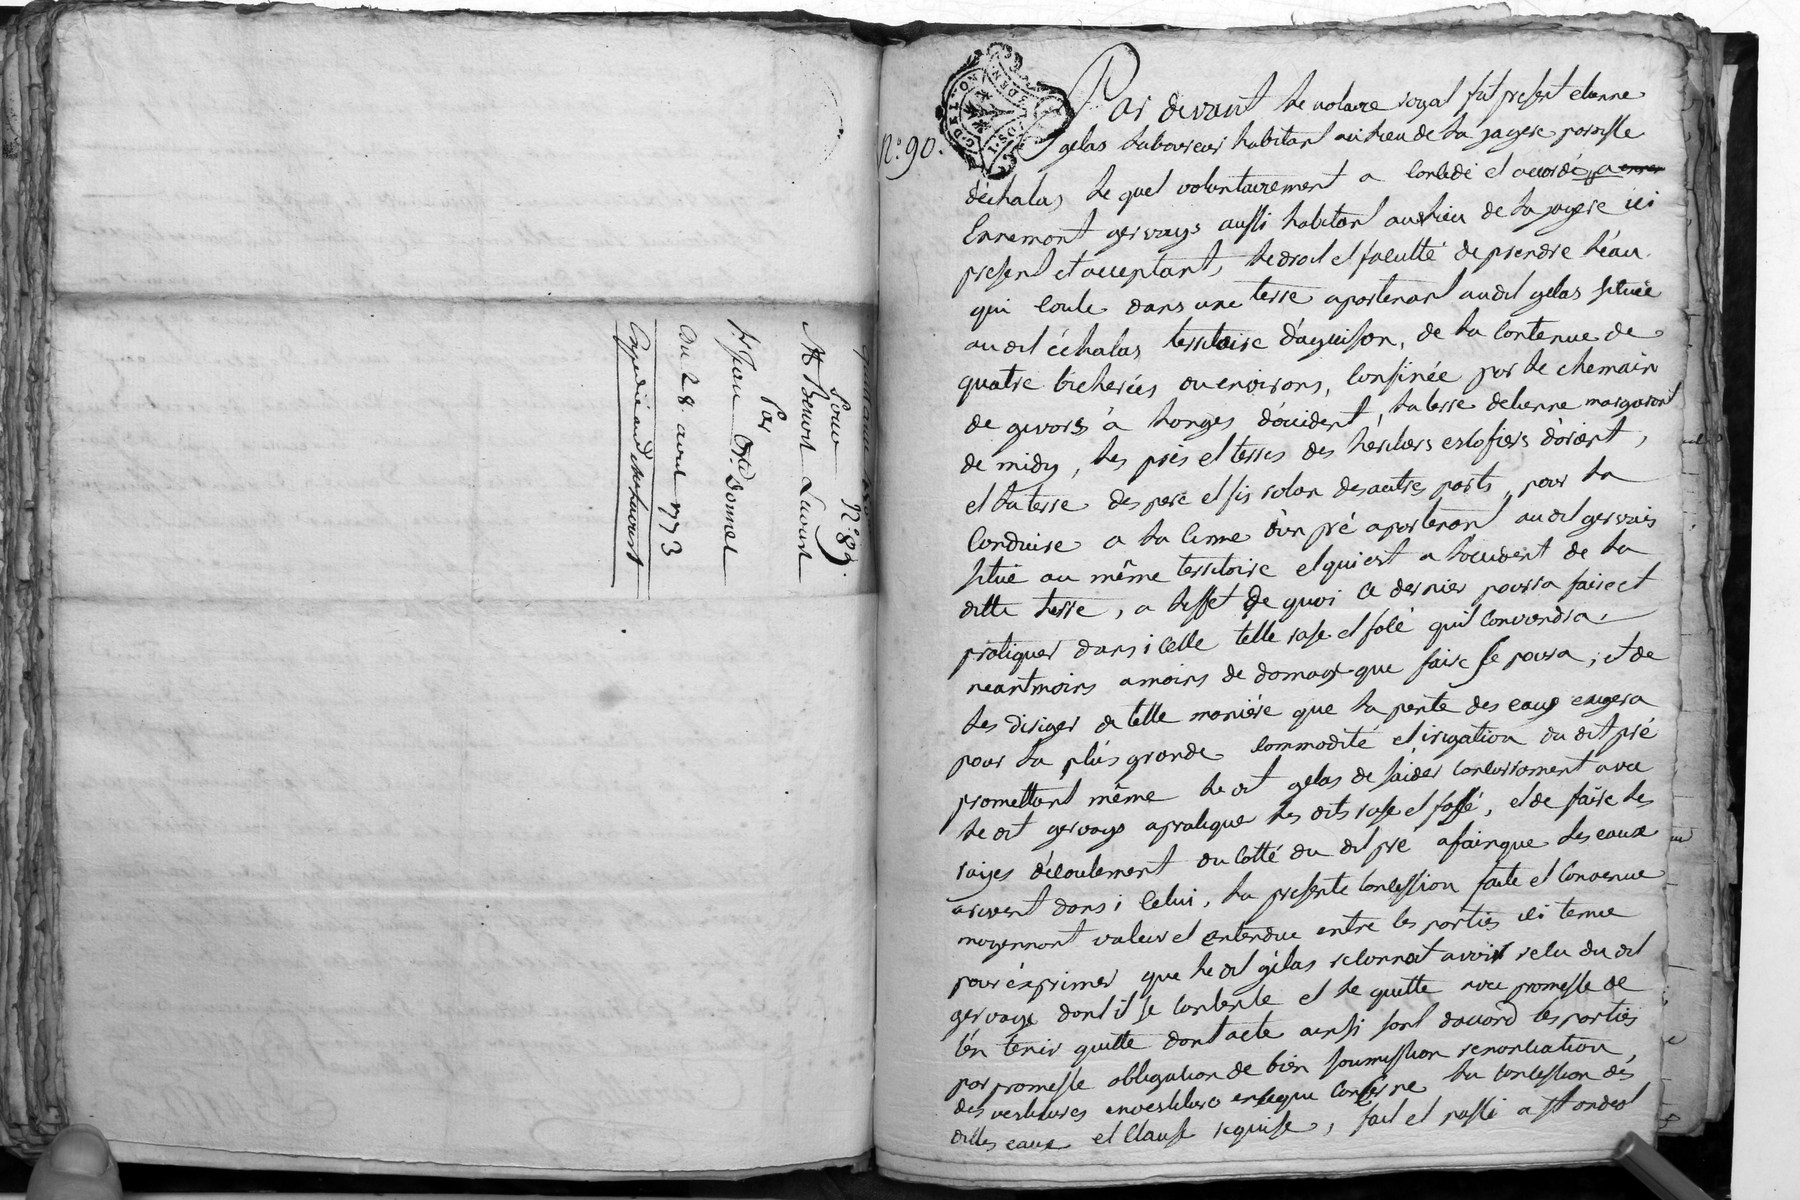 N.° 89.
Pour
Mr Benoit Lavout
Par
Sr Jean Fr. Donnet
Du 28. avril 1773
Expedié aud. Lavout
N.° 90.
Par devant le notaire royal fut present etienne
gelas laboureur habitant au lieu de la jagere paroisse
déchalas le quel volontairement a concédé et accordé a
Ennemont gervays aussi habitant au lieu de la jagere ici
present et acceptant, le droit et faculté de prendre léau
qui coule dans une terre apartenant audit gelas située
audit échalas territoire d'aguisson, de la contenue de
quatre bicherées ou environs, confinée par le chemain
de givors à longes d'occident, la terre detienne margaron
de midy, les prés et terres des hériters estofiers d'orient,
et la terre des pere et fis rolan des autres parts, pour la
conduire a la cime d'un pré apartenant audit gervais
situé au même territoire et qui est a loccident de la
ditte terre, a leffet de quoi ce dernier pourra faire et
pratiquer dans icelle telle rase et fossé quil conviendra,
neantmoins a moins de domage que faire se poura, et de
les diriger de telle maniére que la pente des eaux exigera
pour la plus grande commodité et irigation du dit pré
promettant même le dit gelas de laider concurrament avec
le dit gervays a pratiquer les dits rase et fossé, et de faire les
raizes découlement du cotté du dit pré afainque les eaux
arivent dans icelui, la presente concession faite et convenue
moyennant valeur et entendue entre les parties ici tenue
pour éxprimer que le dit gélas reconnoit avoir reçu du dit
gervays dont il se contente et le quitte avec promesse de
l'en tenir quitte dont acte ainsi sont daccord les parties
par promesse obligation de bien soumission renonciation,
des vestitures investiture en ce que concerne la concession des
dittes eaux et clause requise, fait et passé a st andeol